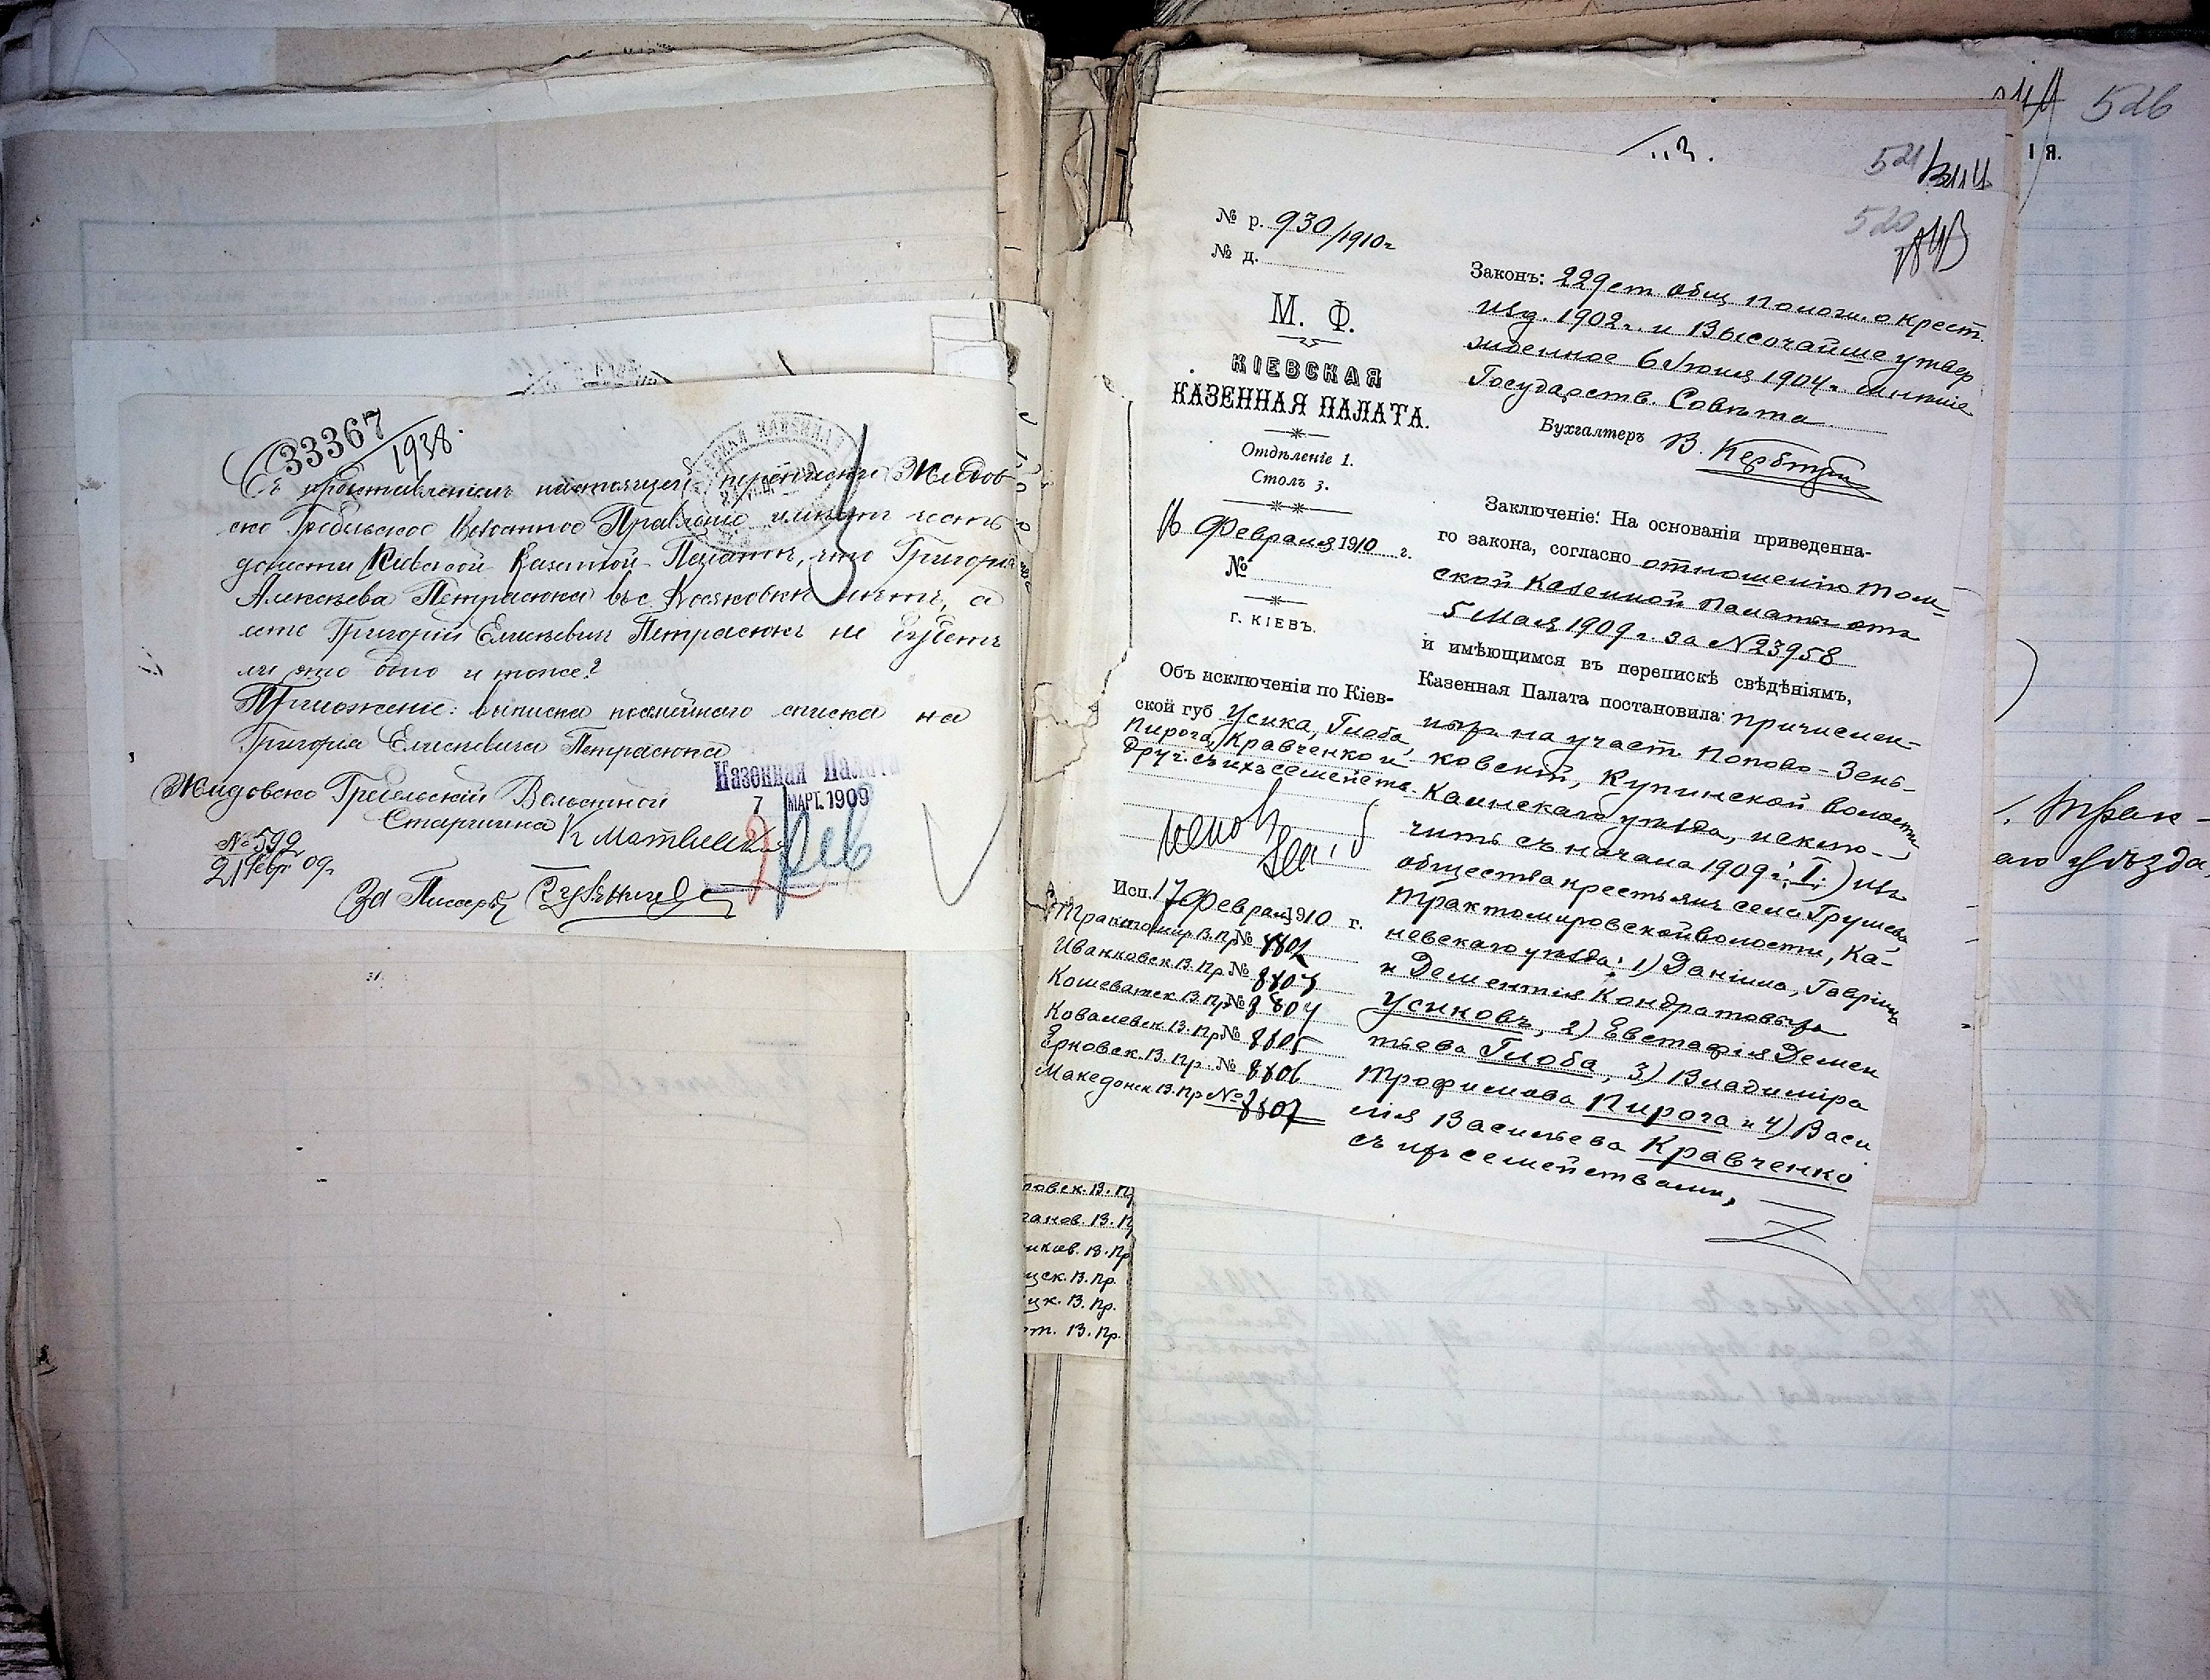 33367
1938
Съ представленіемъ настоящей переписки Жидов
ско Гребельское Волостное Правленіе имѣетъ честь
донести Кіевской Казенной Палатѣ, что Григорія
Алексѣева Петрасюка въ с. Косяковкѣ нѣтъ, а
есть Григорій Елисѣевич Петрасюкъ не будетъ
ли это одно и тоже?
Приложеніе: выписка посемейнаго списка на
Григорія Елисѣевича Петрасюка
Казенная Палата
7 МАРТ. 1909
Жидовско Гребельскій Волостной
Старшина К Матвіенко
№ 592
21 Февр 09 г.
За Писаря
526
ІЯ.
521
520
№ р. 930/1910 г
№ д.
М. Ф.
КІЕВСКАЯ
КАЗЕННАЯ ПАЛАТА.
Отдѣленіе 1.
Столъ 3.
16 Февраля 1910 г.
№
Г. КІЕВЪ.
Объ исключеніи по Кіев-
ской губ Усика, Глоба,
Пирога, Кравченко и
друг. съ ихъ семейств.
Исп. 17 Февраля 1910 г.
Трактомир В. Пр № 8802
Иванковск В. Пр. № 8803
Кошеватск В. Пр № 8804
Ковалевск. В. Пр № 8805
Ерковск. В. Пр. № 8806
Македонск В. Пр № 8807
Законъ: 229 ст общ полож. о крест.
изд. 1902 г. и Высочайше утвер
жденное 6 Іюня 1904 г. мнѣніе
Государств. Совѣта
Бухгалтеръ В.
Заключеніе: На основаніи приведенна-
го закона, согласно отношенію Том-
ской Казенной Палаты отъ
5 Мая 1909 г. за № 23958
и имѣющимся въ перепискѣ свѣдѣніямъ,
Казенная Палата постановила: причислен-
ныхъ на участ. Попово-Зень-
ковскій, Купинской волости
Каинскаго уѣзда, исклю-
чить съ начала 1909 г.: I.) изъ
общества крестьянъ села Грушева,
Трактомировской волости, Ка-
невскаго уѣзда: 1) Даніила, Гавріила
и Дементія Кондратовыхъ
Усиковъ, 2) Евстафія Демен
тьева Глоба, 3) Владиміра
Трофимова Пирога и 4) Васи
лія Васильева Кравченко
съ ихъ семействами,
Трак-
аго уѣзда,
ковск. В. Пр
ганов. В. П
иков. В. Пр
цск. В. Пр.
цк. В. Пр.
т. В. Пр.